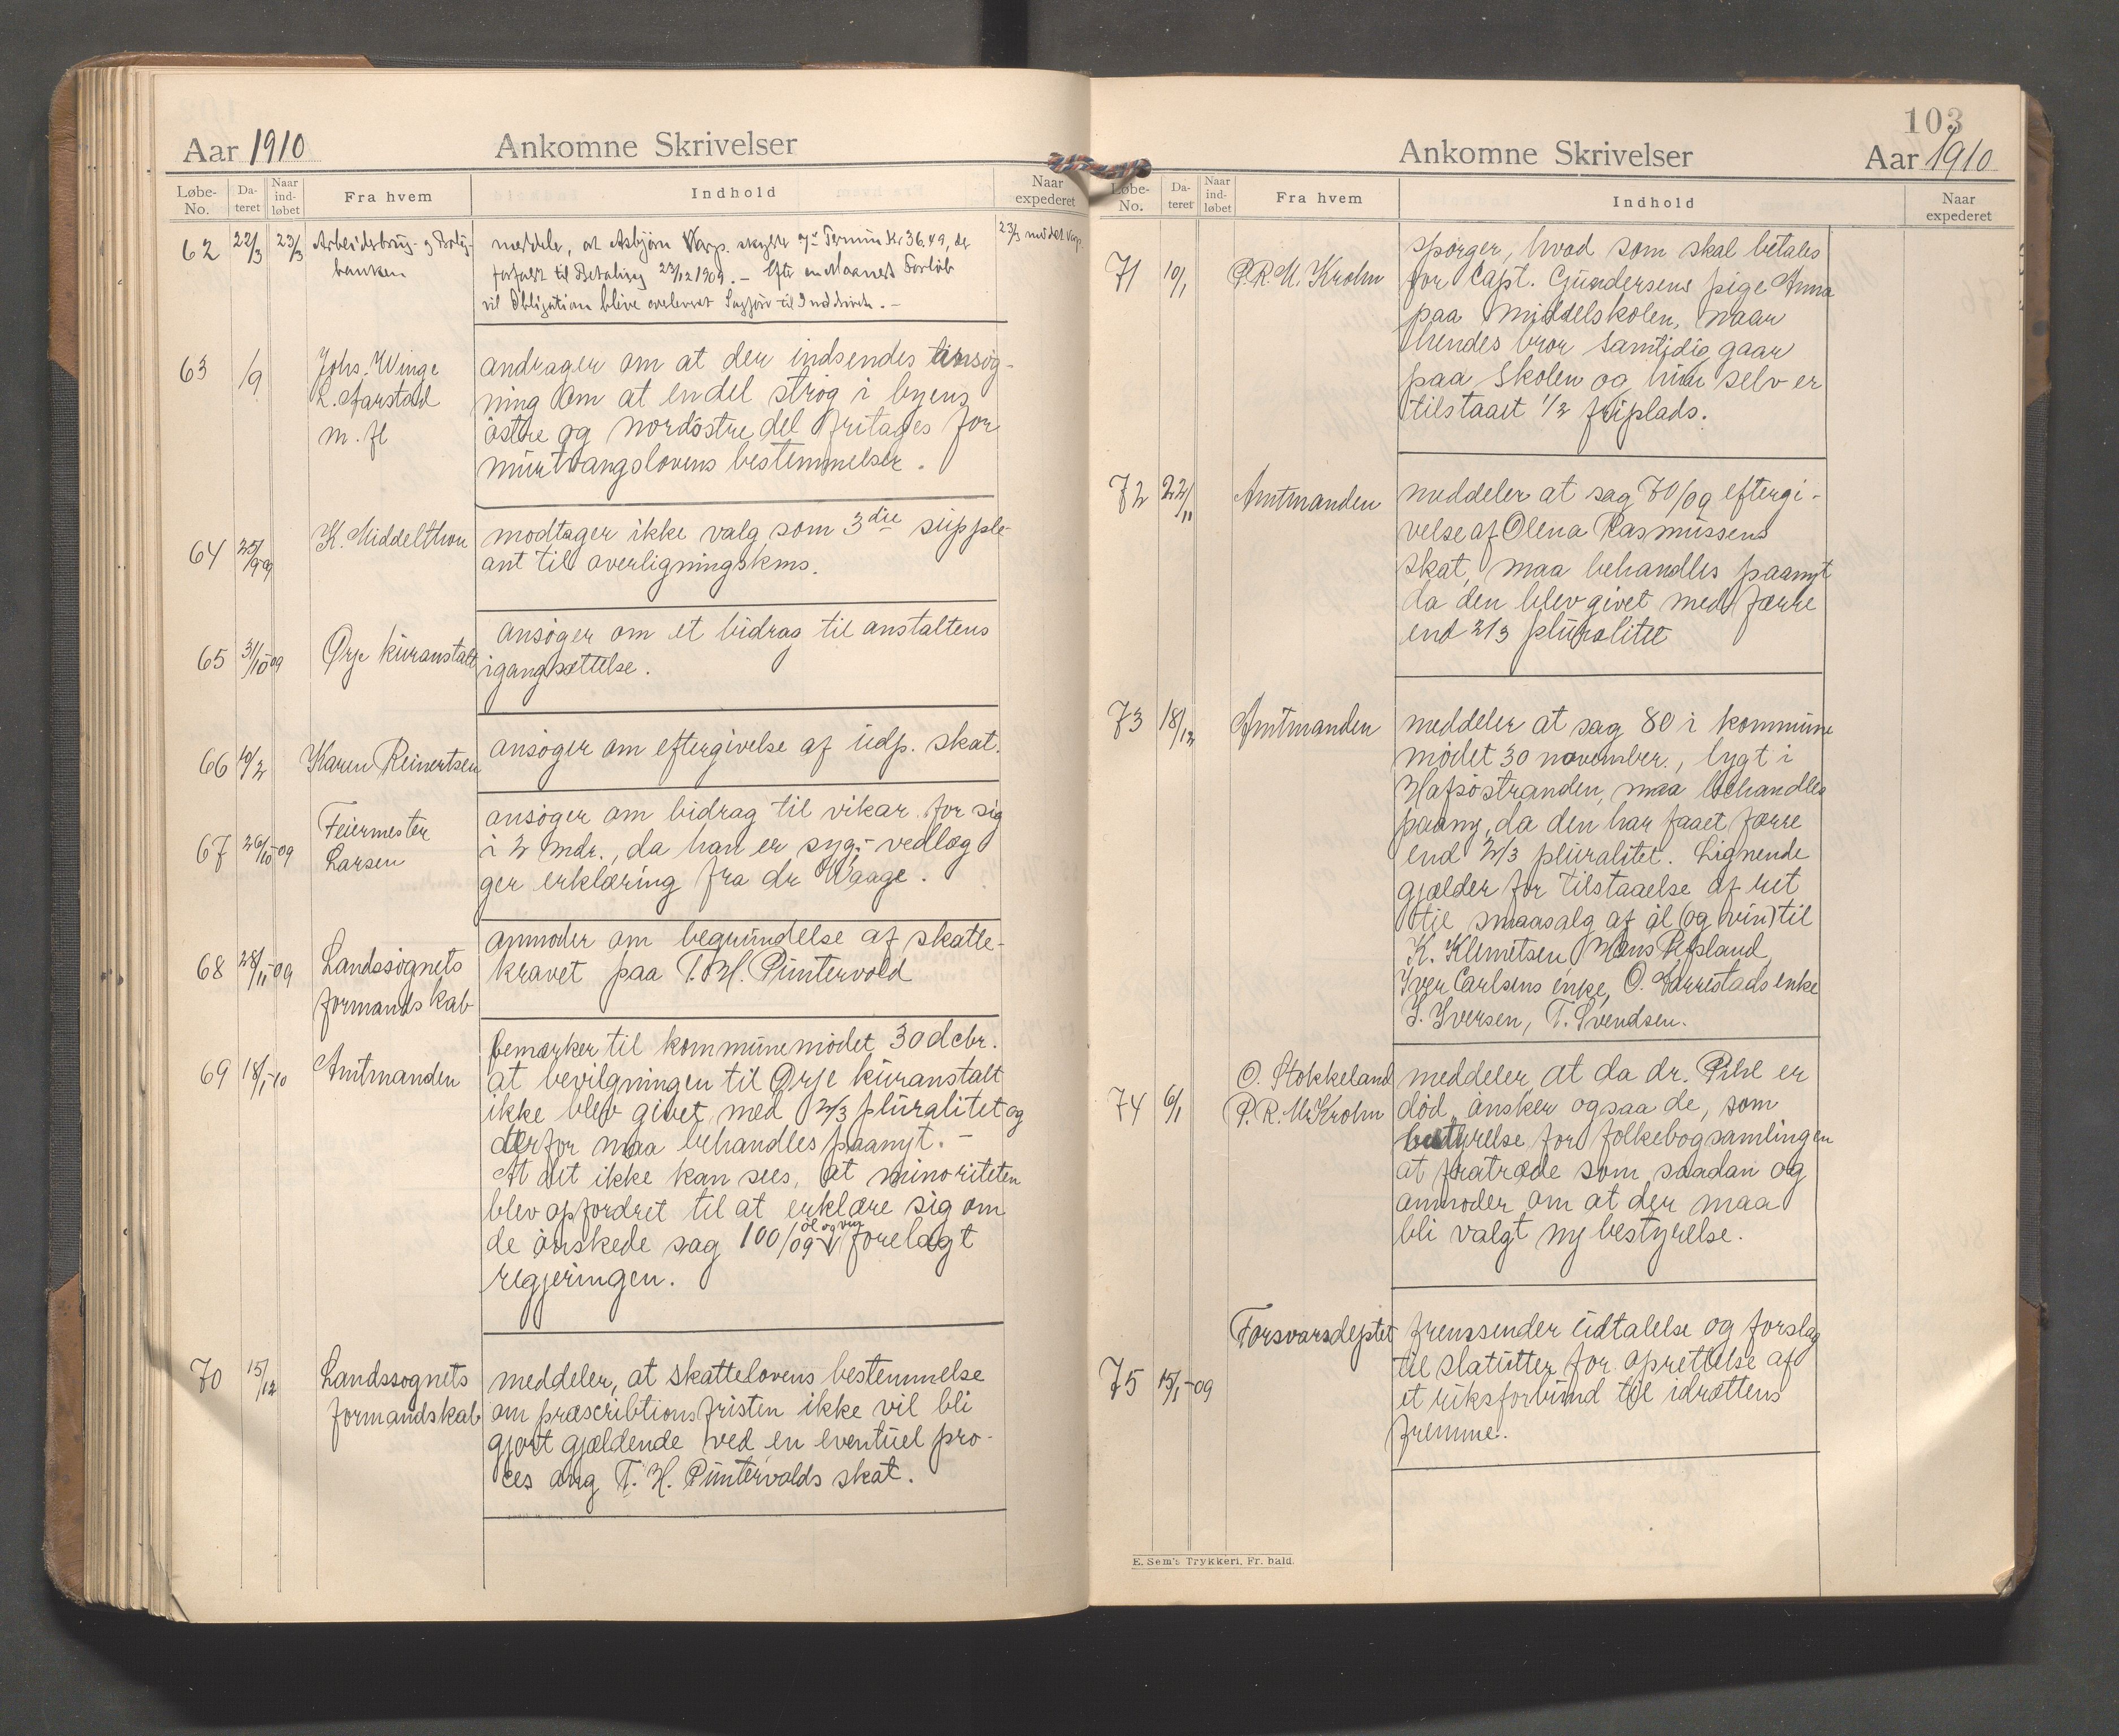 Aar 1910 Ankomne Skrivelser
Løbe-No. Da-teret Naar ind-løbet Fra hvem Indhold Naar expederet
62 22/3 23/3 Arbeiderbrug- og Bolig- meddeler, at Asbjørn Varp. skylder Termin Kr 36.49, der 23/3 meddelt Varp.
banken forfaldt til Betaling 23/12 1909. – Efter en Maaneds Forløb
vil Obligation blive overleveret Sagfører til Inddrivelse. –
63 /9 Johs. Winge andrager om at der indsendes ansøg-
L. Aarstad ning om at en del strøg i byens
m. fl østre og nordøstre del fritages for
murtvangslovens bestemmelser.
64 25/9-09 K. Middelthon modtager ikke valg som 3die supple-
ant til overligningskms.
65 31/10-09 Ørje kuranstalt ansøger om et bidrag til anstaltens
igangsættelse.
66 10/2 Karen Reinertsen ansøger om eftergivelse af udp. skat.
67 26/10-09 Feiermester ansøger om bidrag til vikar for sig
Larsen i 2 mdr., da han er syg,- vedlæg
ger erklæring fra dr Waage.
68 28/11-09 Landssognets anmoder om begrundelse af skatte-
formandskab kravet paa T. H. Puntervold
69 18/1-10 Amtmanden bemærker til kommunemødet 30 dcbr.
at bevilgningen til Ørje kuranstalt
ikke blev givet med 2/3 pluralitet og
derfor maa behandles paanyt. –
At det ikke kan sees, at minoriteten
blev opfordret til at erklære sig om
de ønskede sag 100/09 øl og vin forelagt
regjeringen.
70 15/12 Landssognets meddeler, at skattelovens bestemmelse
formandskab om præscribtionsfristen ikke vil bli
gjort gjældende ved en eventuel pro-
ces ang T. H. Puntervolds skat.
103
Ankomne Skrivelser Aar 1910
Løbe-No. Da-teret Naar ind-løbet Fra hvem Indhold Naar expederet
71 10/1 P. R. M. Krohn spørger, hvad som skal betales
for Capt. Gundersens pige Anna
paa middelskolen, naar
hendes bror samtidig gaar
paa skolen og hun selv er
tilstaaet 1/2 friplads.
72 22/11 Amtmanden meddeler at sag 70/09 eftergi-
velse af Olena Rasmussens
skat, maa behandles paanyt
da den blev givet med færre
end 2/3 pluralitet
73 18/12 Amtmanden meddeler at sag 80 i kommune
mødet 30 november., lygt i
Hafsøstranden, maa behandles
paany, da den har faaet færre
end 2/3 pluralitet. Lignende
gjælder for tilstaaelse af ret
til smaasalg af øl (og vin) til
K. Klemetsen, Mons Refsland,
Iver Carlsens enke, O. Garrestads enke
I. Iversen, T. Svendsen.
74 6/1 O. Stokkeland meddeler at da dr. Pihl er
P. R. M. Krohn død ønsker ogsaa de, som
bestyrelse for folkebogsamlingen
at fratræde som saadan og
anmoder om at der maa
bli valgt ny bestyrelse.
75 15/1-09 Forsvarsdeptet fremsender udtalelse og forslag
til statutter for oprettelse af
et riksforbund til idrættens
fremme.
E. Sem's Trykkeri, Fr. hald.